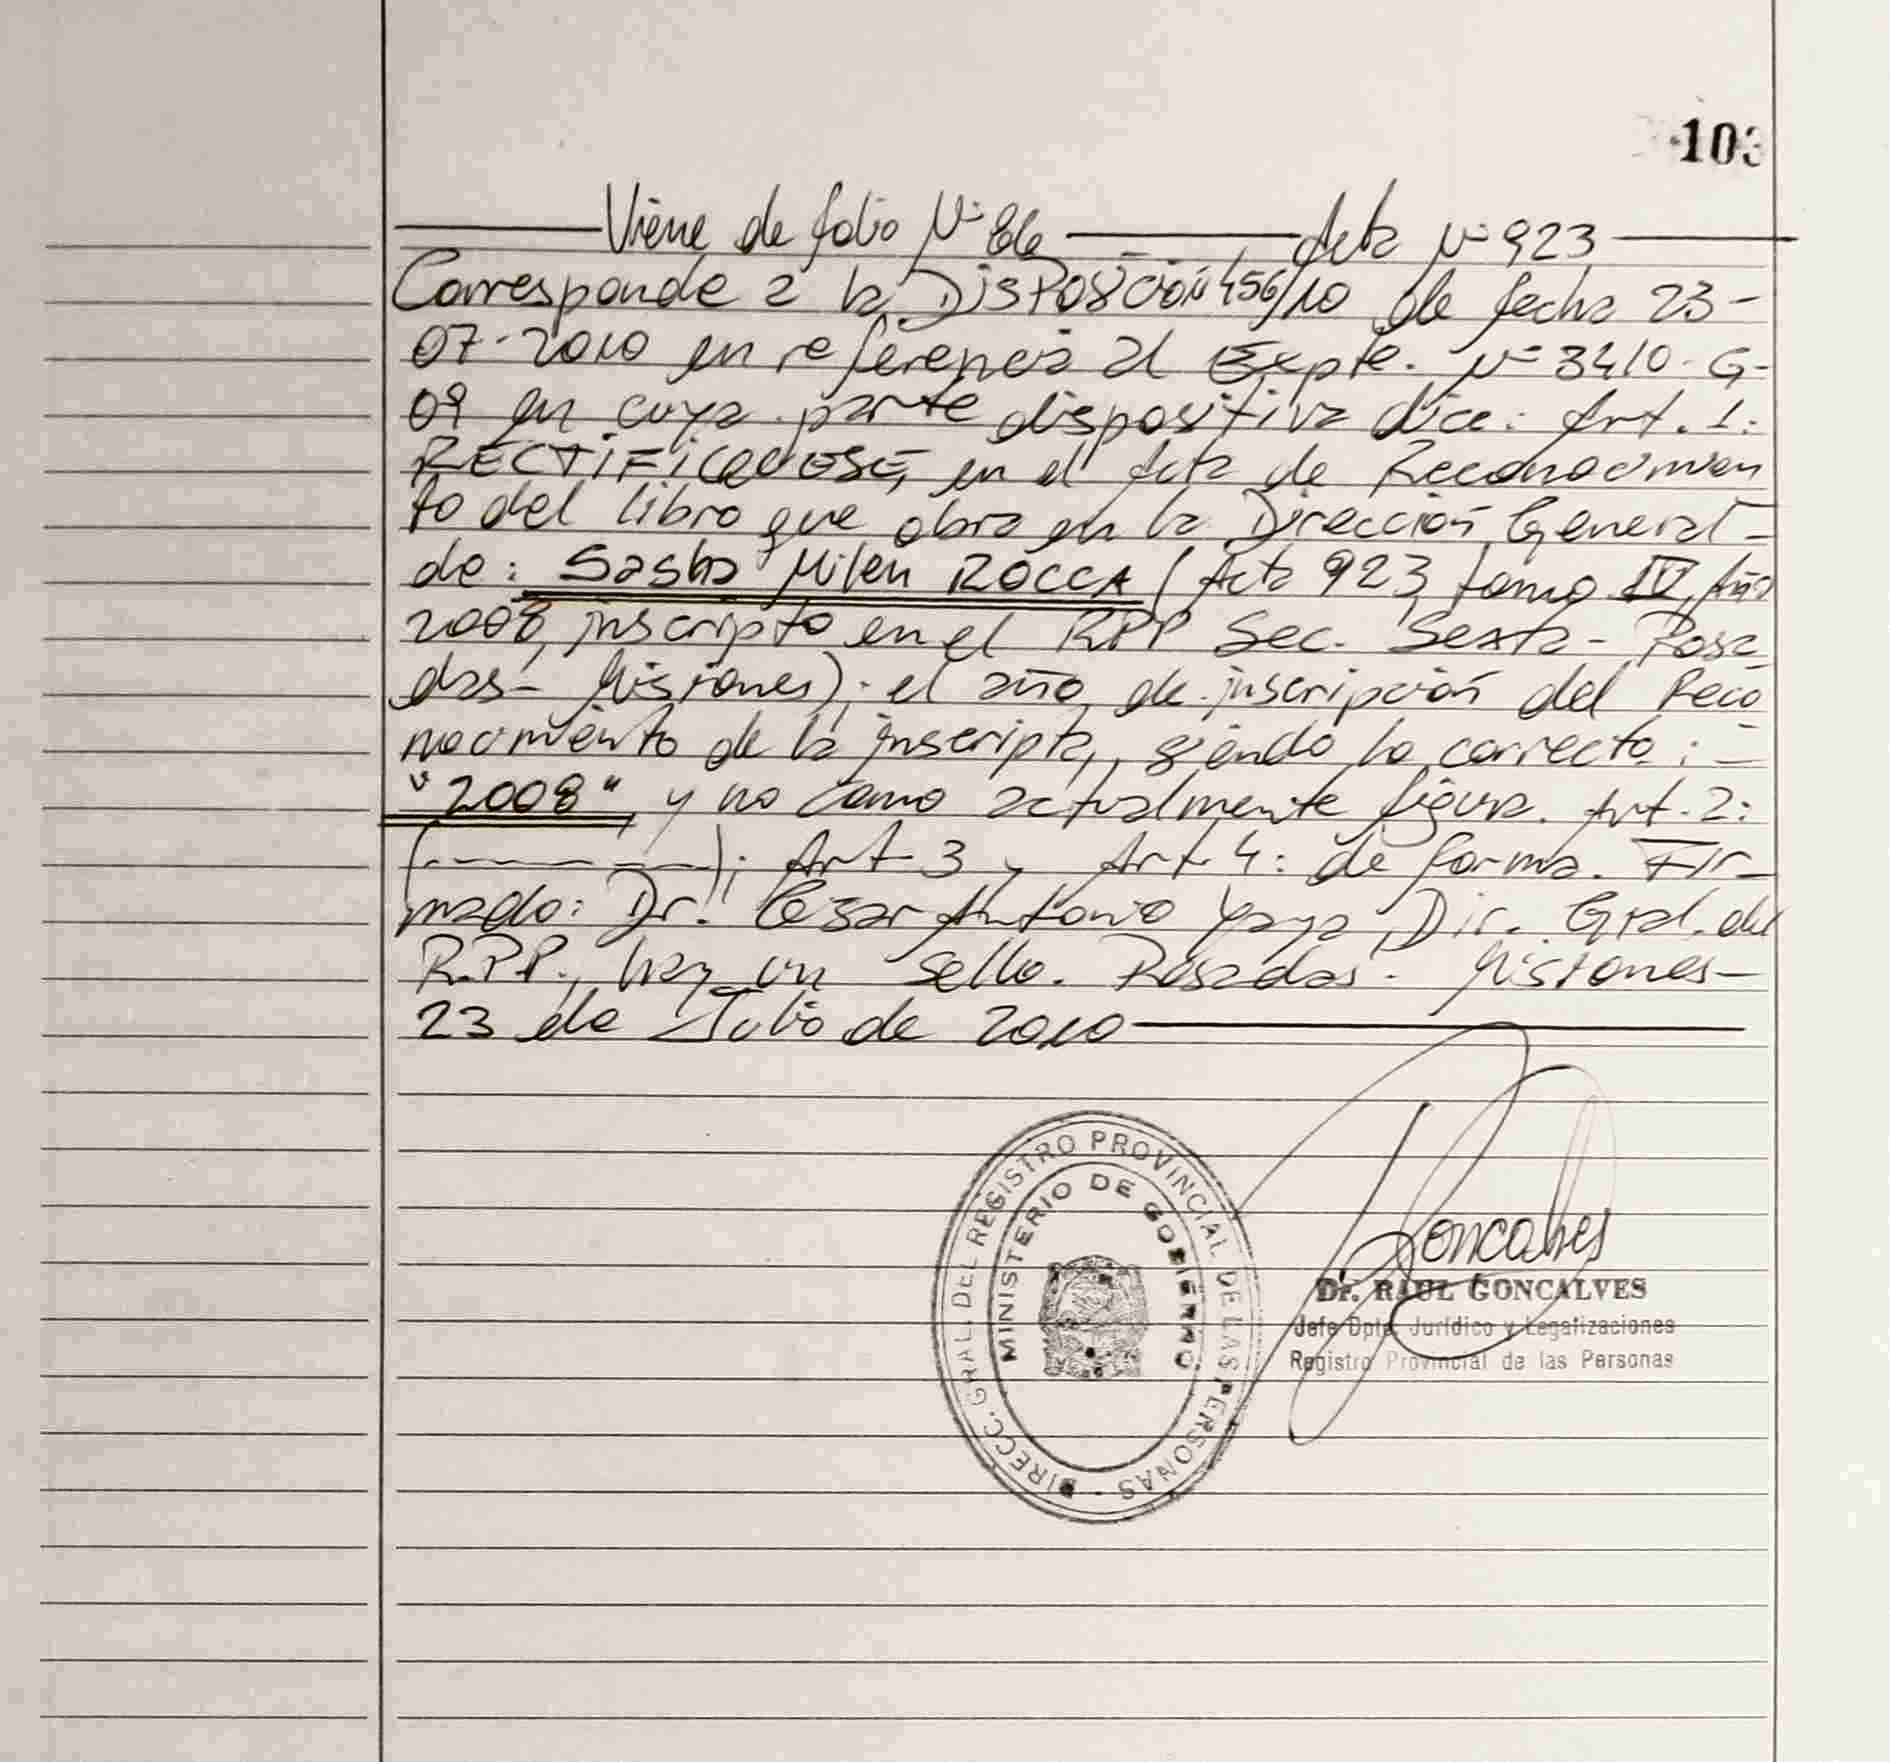 103
Viene de folio N° 86 Acta N° 923
Corresponde a la DISPOSICIÓN 456/10 de fecha 23-
07-2010 en referencia al Expte. N° 3410-G-
09 en cuya parte dispositiva dice: Art. 1:
RECTIFIQUESE, en el Acta de Reconocimien
to del libro que obra en la Dirección General-
de: Sasha Milen ROCCA (Acta 923, tomo IV, Año
2008, inscripto en el RPP Sec. Sexta- Posa
das- Misiones); el año de inscripción del Reco
nocimiento de la inscripta, siendo lo correcto: -
"2008", y no como actualmente figura. Art. 2:
(- - - - - -); Art 3 y Art 4: de forma. Fir-
mado: Dr. Cesar Antonio Yaya, Dir. Gral. del
R.P.P., hay un sello. Posadas- Misiones-
23 de Julio de 2010
DIRECC. GRAL. DEL REGISTRO PROVINCIAL DE LAS PERSONAS -
MINISTERIO DE GOBIERNO
Goncalves
Dr. RAUL GONCALVES
Jefe Dpto. Jurídico y Legalizaciones
Registro Provincial de las Personas